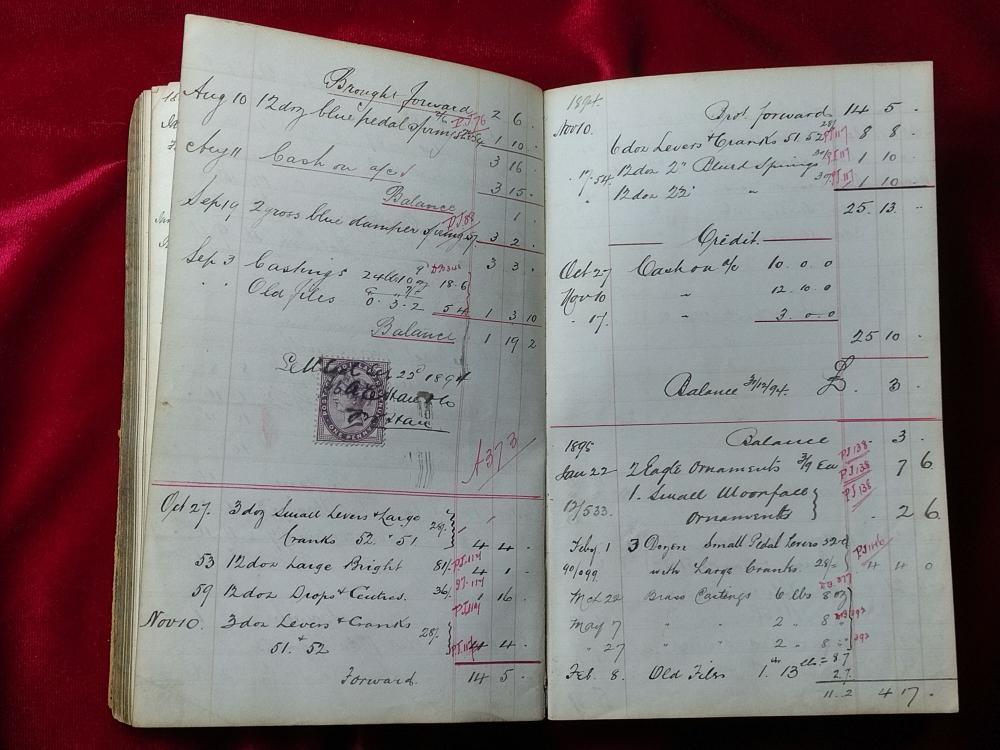 Brought forward 2 6 .
Aug 10 12 doz blue pedal springs 1 10 .
3 16 .
Aug 11 Cash on a/c 3 15 .
Balance 1 .
Sep 19 2 gross blue damper springs 3 2 .
3 3 .
Sep 3 Castings 24 lbs 10 oz 9 18.6
" " Old files 0.3.2 5 4 1 3 10
Balance 1 19 2
1894
POSTAGE
ONE PENNY
A373
Oct 27. 3 doz Small Levers & Large
Cranks 52. " 51 28/. 4 4 .
53 12 doz Large Bright 81/. PJ.114 4 1 .
59 12 doz Drops & Centres. 36/. PJ.114 1 16 .
Nov 10. 3 doz Levers & Cranks
51. + 52 28/. 4 4 .
Forward. 14 5 .
1894.
Brot. forward 14 5 .
Nov 10. 6 doz Levers & Cranks 51.52 28/. PJ117 8 8 .
17.54. 12 doz 2" Blued Springs PJ117 1 10 .
" 12 doz 22 " PJ117 1 10 .
25. 13. .
Credit.
Oct 27 Cash on a/c 10. 0. 0
Nov 10 " 12. 10. 0
" 17. " 3. 0. 0
25 10 .
Balance 31/12/94. £ . 3 .
1895 Balance . 3 .
Jan 22 2 Eagle Ornaments 3/9 Ea PJ138 7 6
12/533. 1. Small Moonface
Ornaments PJ138 . 2 6.
Feby. 1 3 Dozen Small Pedal Levers
90/099 with Large Cranks. 28/= PJ146 4 4 0
Mch 22 Brass Castings 6 lbs 8 oz
May 7 " " 2 " 8 "
" 27 " " 2 " 8 "
Feb. 8. Old Files 1. 13 lbs = 87
27.
11.2 4 17 .